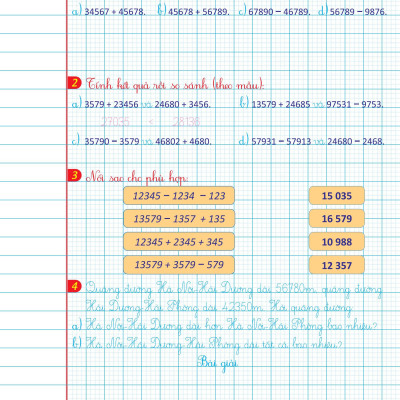 a) 34567 + 45678. b) 45678 + 56789. c) 67890 – 46789. d) 56789 – 9876.
2 Tính kết quả rồi so sánh (theo mẫu):
a) 3579 + 23456 và 24680 + 3456. b) 13579 + 24685 và 97531 – 9753.
27035 < 28136
c) 35790 – 3579 và 46802 + 4680. d) 57931 – 57913 và 24680 – 2468.
3 Nối sao cho phù hợp:
12345 – 1234 – 123 15 035
13579 – 1357 + 135 16 579
12345 + 2345 + 345 10 988
13579 + 3579 – 579 12 357
4 Quãng đường Hà Nội-Hải Dương dài 56780m, quãng đường
Hải Dương-Hải Phòng dài 42350m. Hỏi quãng đường
a) Hà Nội-Hải Dương dài hơn Hà Nội-Hải Phòng bao nhiêu?
b) Hà Nội-Hải Dương-Hải Phòng dài tất cả bao nhiêu?
Bài giải